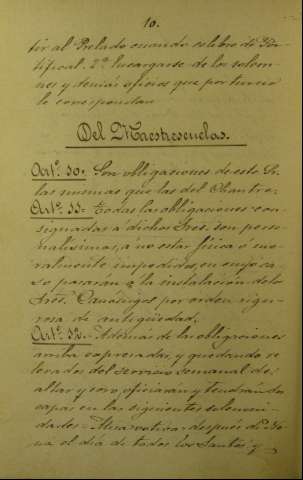 10.
tir al Prelado cuando celebre de Pon-
tifical. 2º Encargarse de los solem-
nes y demás oficios que por turno
le correspondan
Del Maestrescuelas.
Artº. 30: Son obligaciones de este Sr.
las mismas que las del Chantre.
Artº. 33= Todas las obligaciones con-
signadas a dichos Sres. son perso-
nalísimas, a no estar física o mo-
ralmente impedidos, en cuyo ca-
so pasarán a la instalación de los
Sres. Canónigos por orden rigu-
rosa de antigüedad.
Artº. 32. Además de las obligaciones
arriba expresadas, y quedando re-
levados del servicio semanal de
altar y coro, oficiarán y tendrán de
capas en las siguientes solemni-
dades= Misa votiva después de No-
na el día de todos los Santos, y